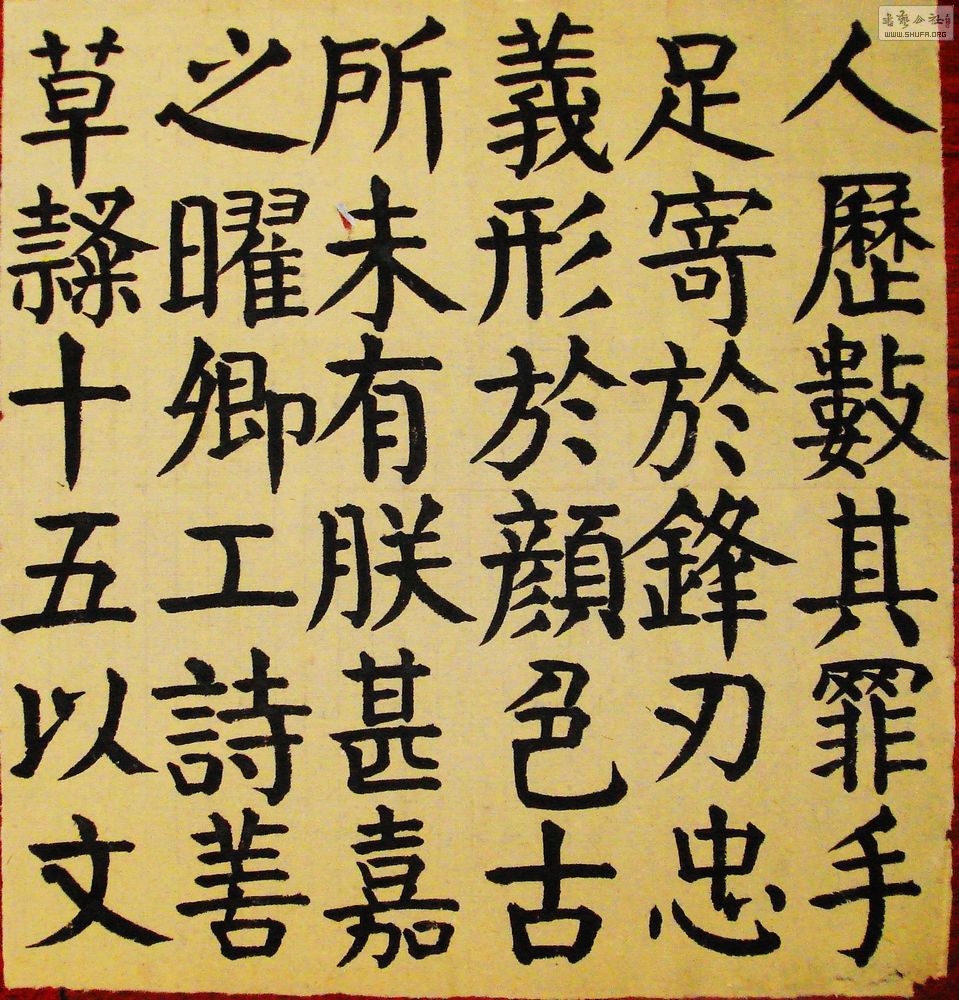 人歷數其罪手
足寄於鋒刃忠
義形於顏色古
所未有朕甚嘉
之曜卿工詩善
草隸十五以文
書藝公社
WWW.SHUFA.ORG